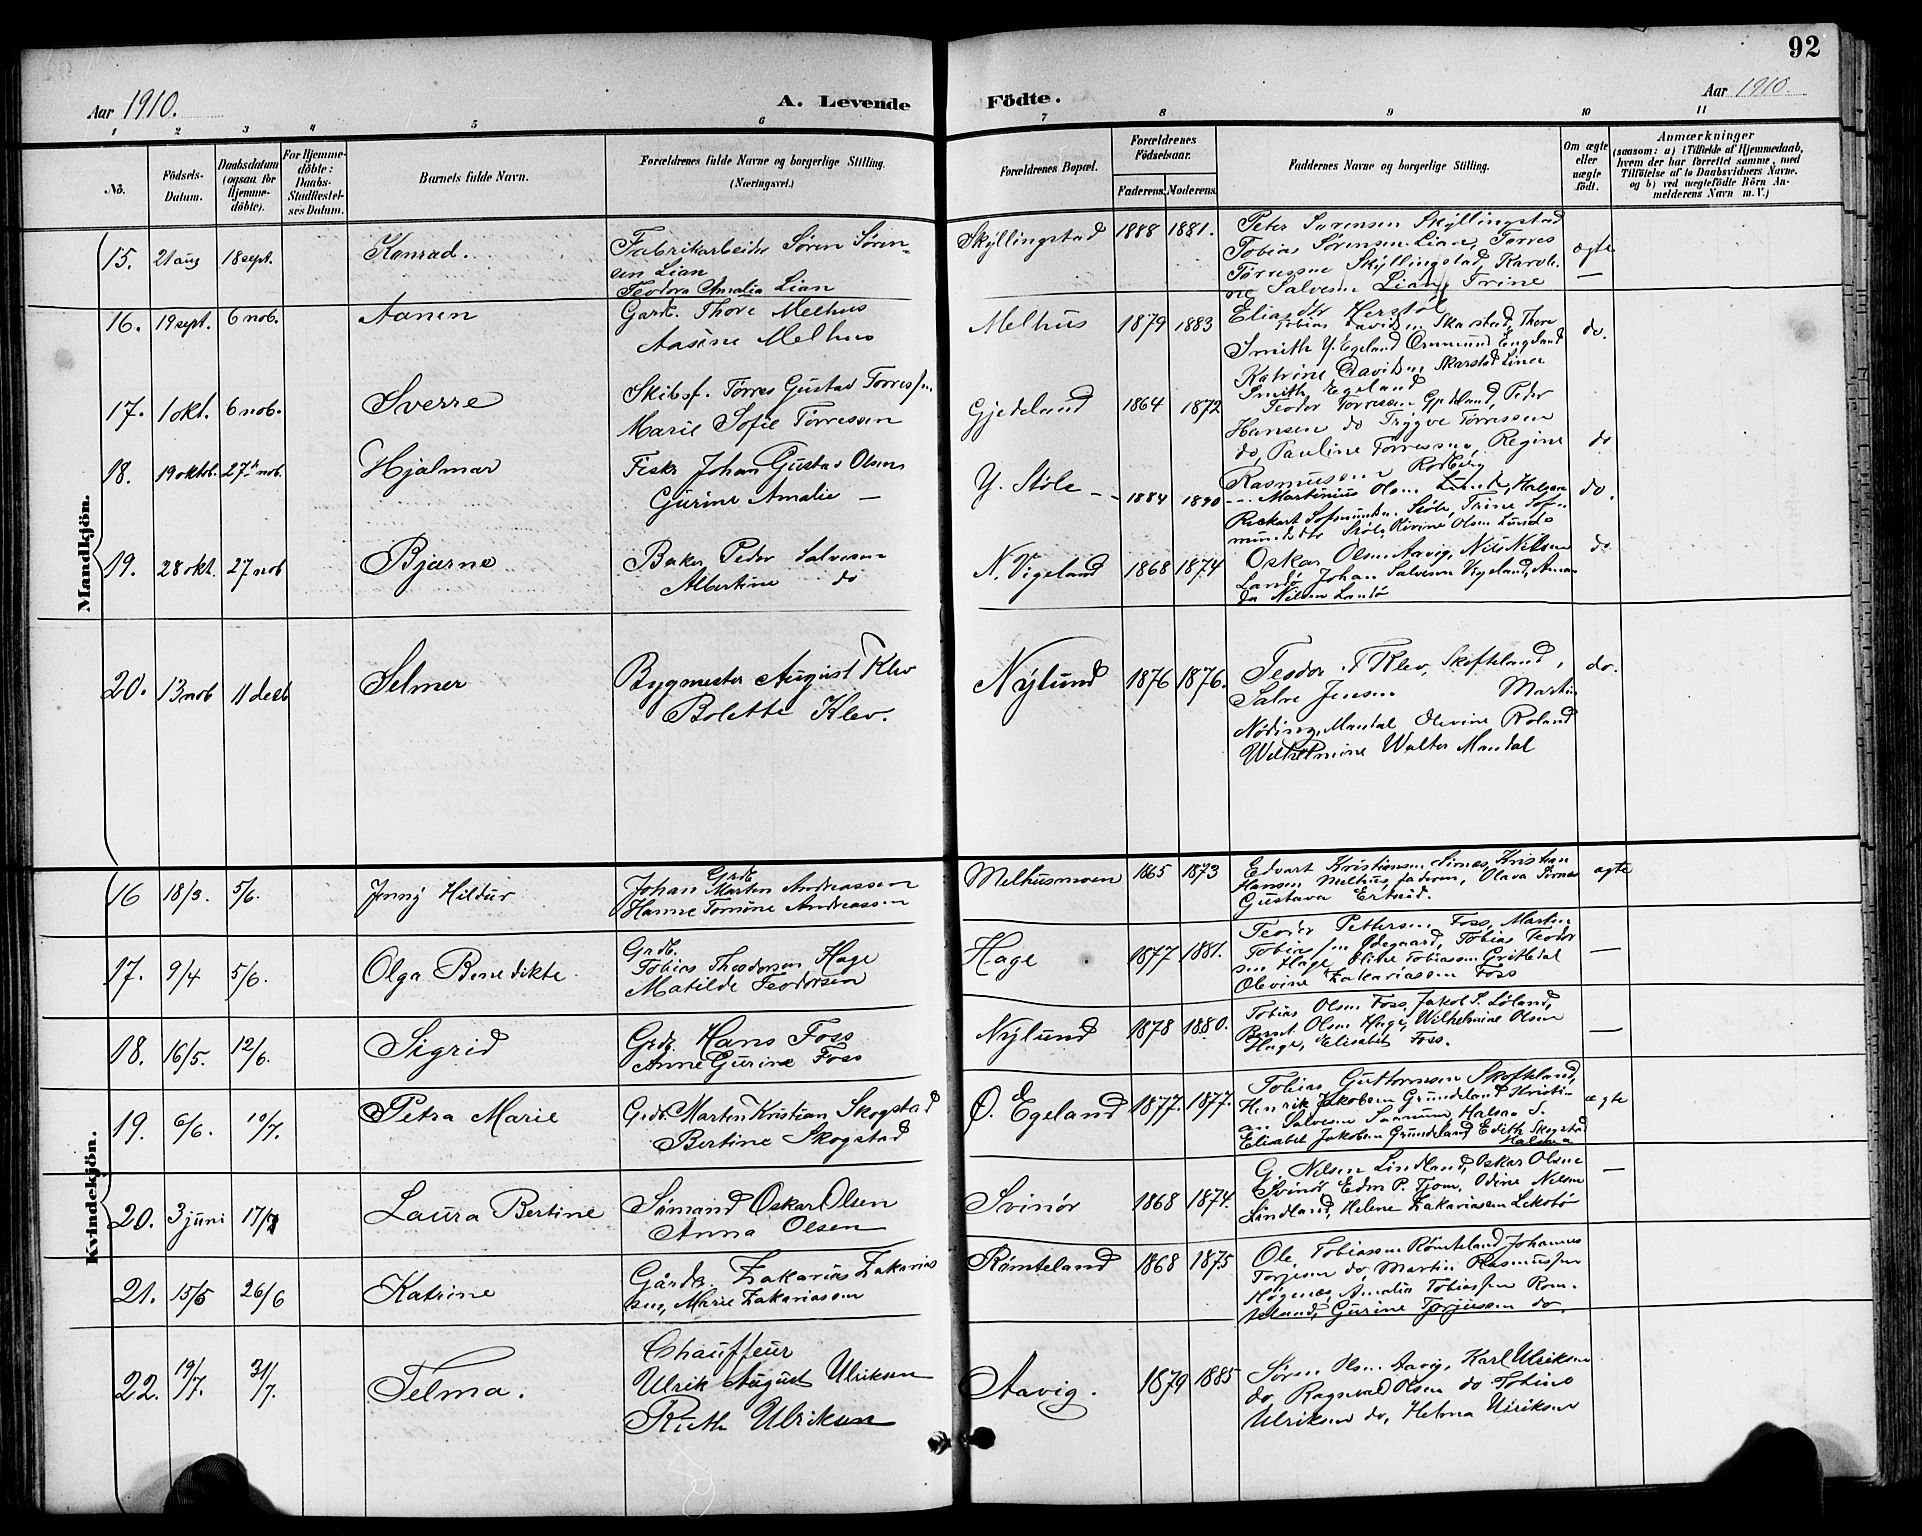 92
Aar 1910.
A. Levende Födte.
Aar 1910.
1 2 3 4 5 6 7 8 9 10 11
No.
Födsels-Datum.
Daabsdatum (ogsaa for Hjemmedöbte).
For Hjemmedöbte: Daabs-Stadfæstelses Datum.
Barnets fulde Navn.
Forældrenes fulde Navne og borgerlige Stilling. (Næringsvei.)
Forældrenes Bopæl.
Forældrenes Födselsaar.
Faderens. Moderens.
Faddernes Navne og borgerlige Stilling.
Om ægte eller uægte født.
Anmærkninger
(saasom: a) i Tilfælde af Hjemmedaab, hvem der har forrettet samme, med Tilföielse af to Daabsvidners Navne, og b) ved uægtefödte Börn Anmelderens Navn m. V.)
Mandkjön.
15. 21 aug 18 sept. Konrad. Fabrikarbeider Sören Sören-
sen Lian
Teodora Amalia Lian
Skyllingstad 1888 1881. Peter Sørensen Skyllingstad
Tobias Sørensen Lian, Tørres
Tørressne Skyllingstad, Karoli-
ne Salvesen Lian, Trine
ægte
—
16. 19 sept. 6 nob. Aanen Gardr. Thore Melhus
Aasine Melhus
Melhus 1879 1883 Elias Herstøl
Tobias Davidsn Skarstad, Thore
Smith Y. Egeland Ommund Engeland
Katrine Davidsn Skarstad Line
Smith Egeland
do.
17. 1 okt. 6 nob. Sverre Skibsf. Tørres Gustav Torressen
Marie Sofie Tørressen
Gjedeland 1864 1872 Teodor Tørressen Gjedeland, Peder
Hansen do Trygve Tørressen
do, Pauline Tørressen, Regine
Rasmussen Rødberg
do
18. 19 oktob. 27de nob. Hjalmar Fiskr Johan Gustav Olsen
Gurine Amalie —
Y. Støle 1884 1890 Martinius Olsn Lunde, Halvor
Støle, Trine
Støle, Olsn Lunde
do.
19. 28 okt. 27 nob Bjarne Baker Peder Salvesen
Albertine do
N. Vigeland 1868 1874 Oskar Olsen Aavig, Nils Nilsen
Landø Johan Salvesen Vigeland, Aman
da Nilsen Landø
do
20. 13 nob 11 desb Selmer Bygmester August T Klev
Bolette Klev.
Nylund 1876 1876. Teodor T Klev, Skofteland,
Salve Jensen Martin
Nøding, Mandal Olevine Roland
Wilhelmine Walter Mandal
do.
Kvindekjön.
16 18/3 5/6. Jenny Hildur Grdb.
Johan Martin Andreassen
Hanne Tomine Andreassen
Melhusmoen 1865 1873 Edvart Kristiansen Sirnes, Kristian
Hansen Melhus, faderen, Olava Sirnes
Gustava
ægte
17. 9/4 5/6. Olga Benedikte. Grdb.
Tobias Theodorsen Hage
Matilde Teodorsen
Hage 1877 1881. Teodor Pettersen Foss, Martin
Tobiassen Ødegaard, Tobias Teodor
sen Hage Oline Tobiassen
Olevine Zakariassen Foss
—
18. 16/5. 12/6. Sigrid Grdb Hans Foss
Anne Gurine Foss
Nylund 1878 1880. Tobias Olsen Foss, Jakob S. Løland,
Bernt Olsen Hage, Wilhelmine Olsen
Hage, Elisabet Foss.
—
19. 6/6. 10/7. Petra Marie Grdb. Martin Kristian Skogstad
Bertine Skogstad
Ø. Egeland 1877. 1877. Tobias Guttormsen Skofteland,
Henrik Jakobsen Grundeland Kristi-
an Salvesen Sanum, Halsaa S.
Elisabet Jakobsen Grundeland Edith Skogstad
Halsaa
ægte
20. 3 juni 17/7 Laura Bertine Sömand Oskar Olsen
Anna Olsen
Svinør 1868 1874. G. Nilsen Lindland, Oskar Olsen
Svinør Edm P. Tjom, Odine Nilsen
Lindland, Helene Zakariassen Lekobø
—
21. 15/5 26/6 Katrine Gårdb. Zakarias Zakarias
sen, Marie Zakariassen
Rømteland 1868 1875 Ole Tobiassen Rømteland, Johannes
Torjesen do, Martin Rasmussen
Høgenes, Amalia Tobiassen Rom-
teland, Gurine Torjussen do.
22. 19/7. 31/7. Telma. Chauffeur
Ulrik August Ulriksen
Ruth Ulriksen
Aavig. 1879 1885 Søren Olsen Aavig, Karl Ulriksen
do, Ragnvald Olsen do Tobine
Ulriksen do, Helma Ulriksen